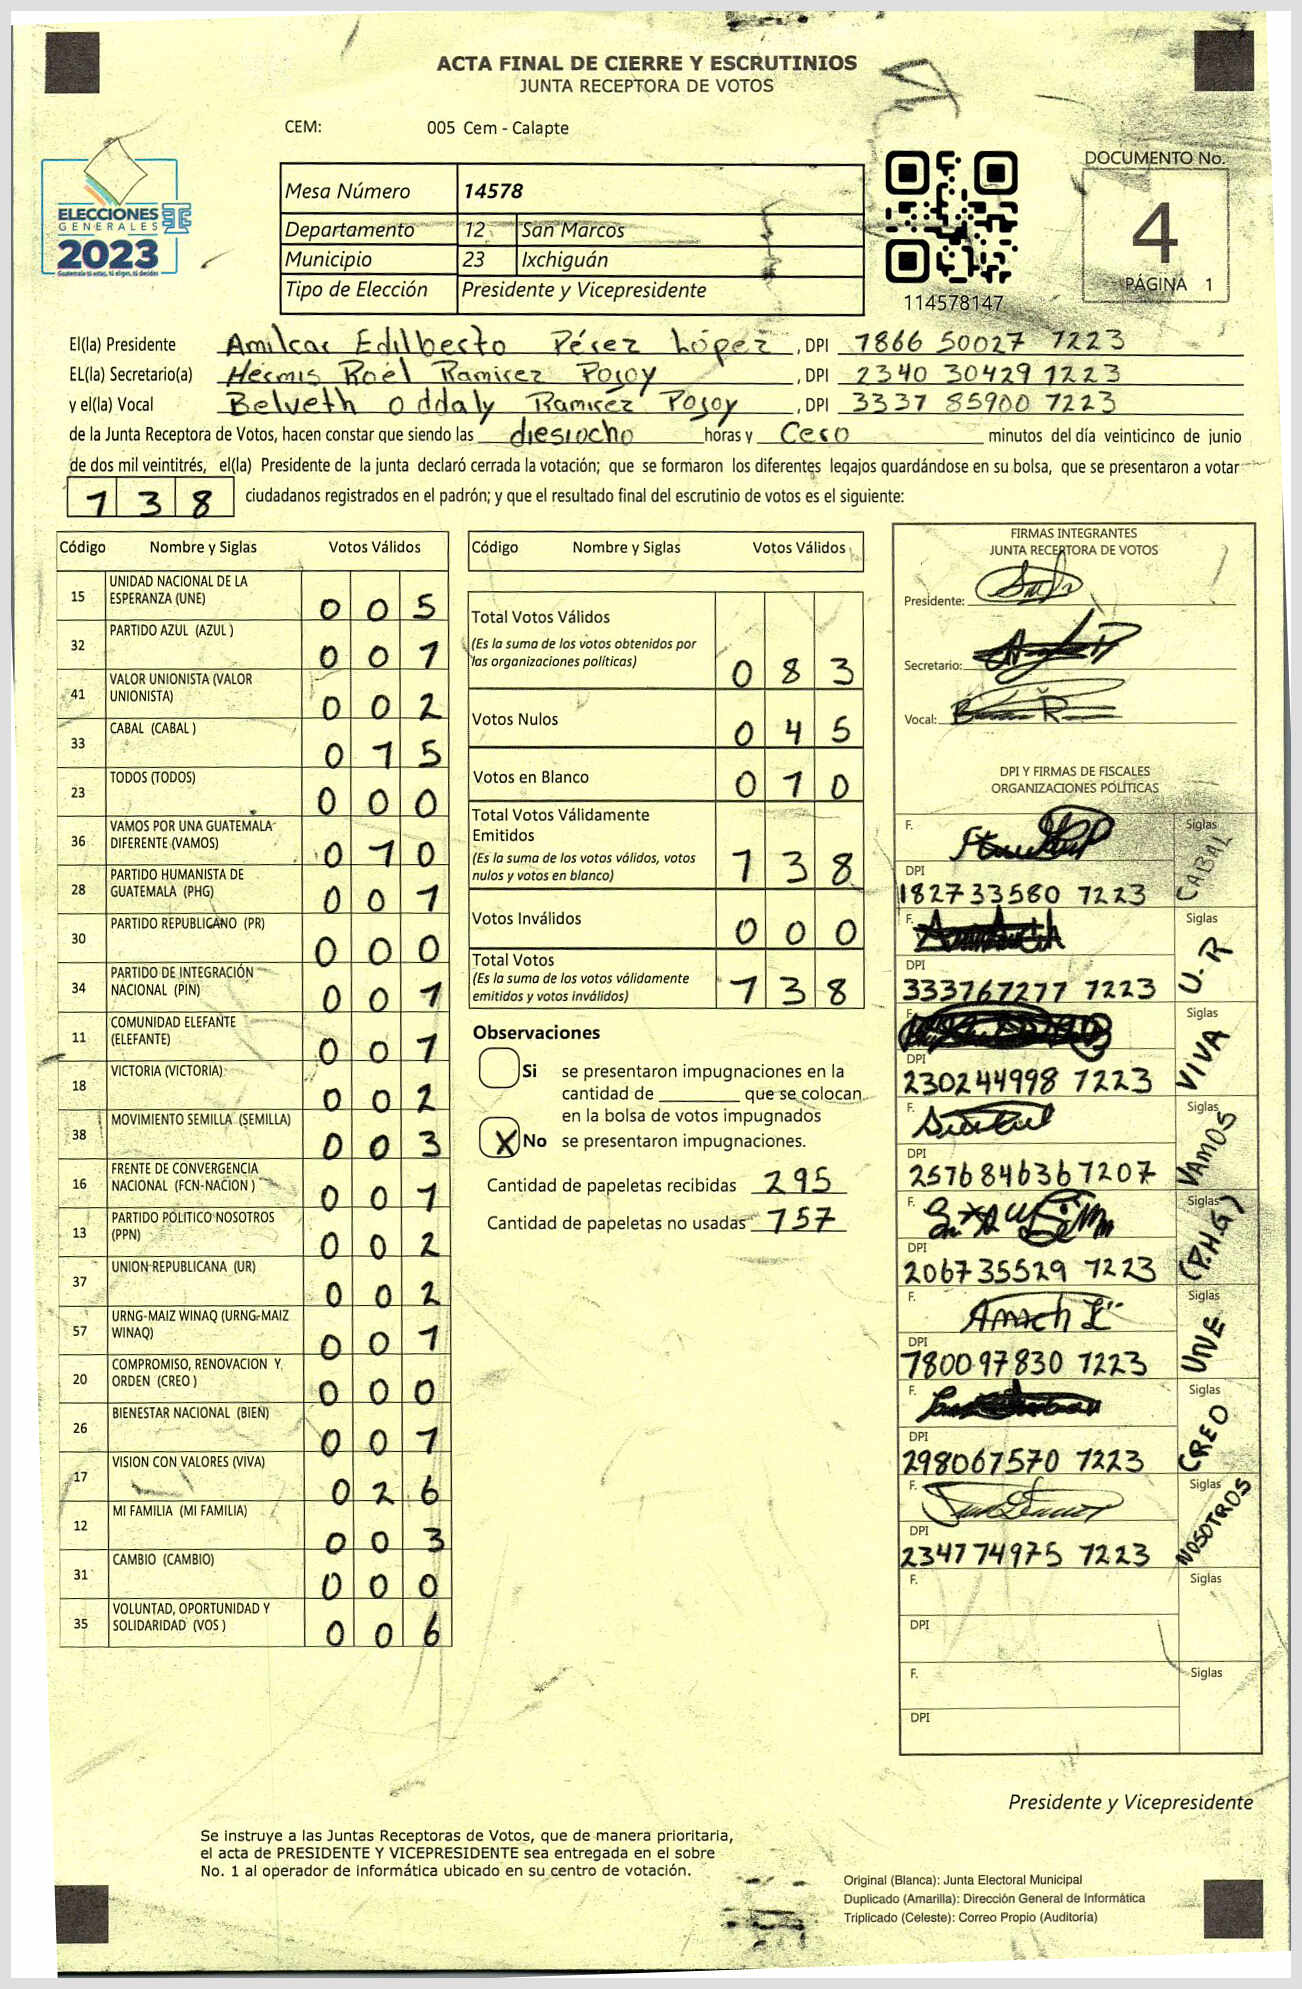 ACTA FINAL DE CIERRE Y ESCRUTINIOS
JUNTA RECEPTORA DE VOTOS
CEM: 005 Cem - Calapte
ELECCIONES
GENERALES
2023
Guatemala tú estas, tú eliges, tú decides
Mesa Número 14578
Departamento 12 San Marcos
Municipio 23 Ixchiguán
Tipo de Elección Presidente y Vicepresidente
114578147
DOCUMENTO No.
4
PÁGINA 1
El(la) Presidente Amilcar Edilberto Pérez López, DPI 1866 50027 1223
EL(la) Secretario(a) Hermis Roel Ramirez Pojoy, DPI 2340 30429 1223
y el(la) Vocal Belveth Oddaly Ramiréz Pojoy, DPI 3337 85900 1223
de la Junta Receptora de Votos, hacen constar que siendo las diesiocho horas y Cero minutos del día veinticinco de junio
de dos mil veintitrés, el(la) Presidente de la junta declaró cerrada la votación; que se formaron los diferentes legajos guardándose en su bolsa, que se presentaron a votar
138 ciudadanos registrados en el padrón; y que el resultado final del escrutinio de votos es el siguiente:
Código Nombre y Siglas Votos Válidos
15 UNIDAD NACIONAL DE LA
ESPERANZA (UNE) 005
32 PARTIDO AZUL (AZUL ) 001
41 VALOR UNIONISTA (VALOR
UNIONISTA) 002
33 CABAL (CABAL ) 015
23 TODOS (TODOS) 000
36 VAMOS POR UNA GUATEMALA
DIFERENTE (VAMOS) 010
28 PARTIDO HUMANISTA DE
GUATEMALA (PHG) 001
30 PARTIDO REPUBLICANO (PR) 000
34 PARTIDO DE INTEGRACIÓN
NACIONAL (PIN) 001
11 COMUNIDAD ELEFANTE
(ELEFANTE) 001
18 VICTORIA (VICTORIA) 002
38 MOVIMIENTO SEMILLA (SEMILLA) 003
16 FRENTE DE CONVERGENCIA
NACIONAL (FCN-NACION ) 001
13 PARTIDO POLITICO NOSOTROS
(PPN) 002
37 UNION REPUBLICANA (UR) 002
57 URNG-MAIZ WINAQ (URNG-MAIZ
WINAQ) 001
20 COMPROMISO, RENOVACION Y
ORDEN (CREO ) 000
26 BIENESTAR NACIONAL (BIEN) 001
17 VISION CON VALORES (VIVA) 026
12 MI FAMILIA (MI FAMILIA) 003
31 CAMBIO (CAMBIO) 000
35 VOLUNTAD, OPORTUNIDAD Y
SOLIDARIDAD (VOS ) 006
Código Nombre y Siglas Votos Válidos
Total Votos Válidos
(Es la suma de los votos obtenidos por
las organizaciones políticas) 083
Votos Nulos 045
Votos en Blanco 010
Total Votos Válidamente
Emitidos
(Es la suma de los votos válidos, votos
nulos y votos en blanco) 138
Votos Inválidos 000
Total Votos
(Es la suma de los votos válidamente
emitidos y votos inválidos) 138
Observaciones
Si se presentaron impugnaciones en la
cantidad de ________ que se colocan
en la bolsa de votos impugnados
X No se presentaron impugnaciones.
Cantidad de papeletas recibidas 295
Cantidad de papeletas no usadas 157
FIRMAS INTEGRANTES
JUNTA RECEPTORA DE VOTOS
Presidente:
Secretario:
Vocal:
DPI Y FIRMAS DE FISCALES
ORGANIZACIONES POLÍTICAS
F. Siglas CABAL
DPI
182733580 1223
F. Siglas U.R
DPI
333767277 1223
F. Siglas VIVA
DPI
230244998 1223
F. Siglas VAMOS
DPI
257684636 1207
F. Siglas (P.H.G)
DPI
206735529 1223
F. Siglas UNE
DPI
180097830 1223
F. Siglas CREO
DPI
298067570 1223
F. Siglas NOSOTROS
DPI
234774975 1223
F. Siglas
DPI
F. Siglas
DPI
Presidente y Vicepresidente
Se instruye a las Juntas Receptoras de Votos, que de manera prioritaria,
el acta de PRESIDENTE Y VICEPRESIDENTE sea entregada en el sobre
No. 1 al operador de informática ubicado en su centro de votación.
Original (Blanca): Junta Electoral Municipal
Duplicado (Amarilla): Dirección General de Informática
Triplicado (Celeste): Correo Propio (Auditoría)